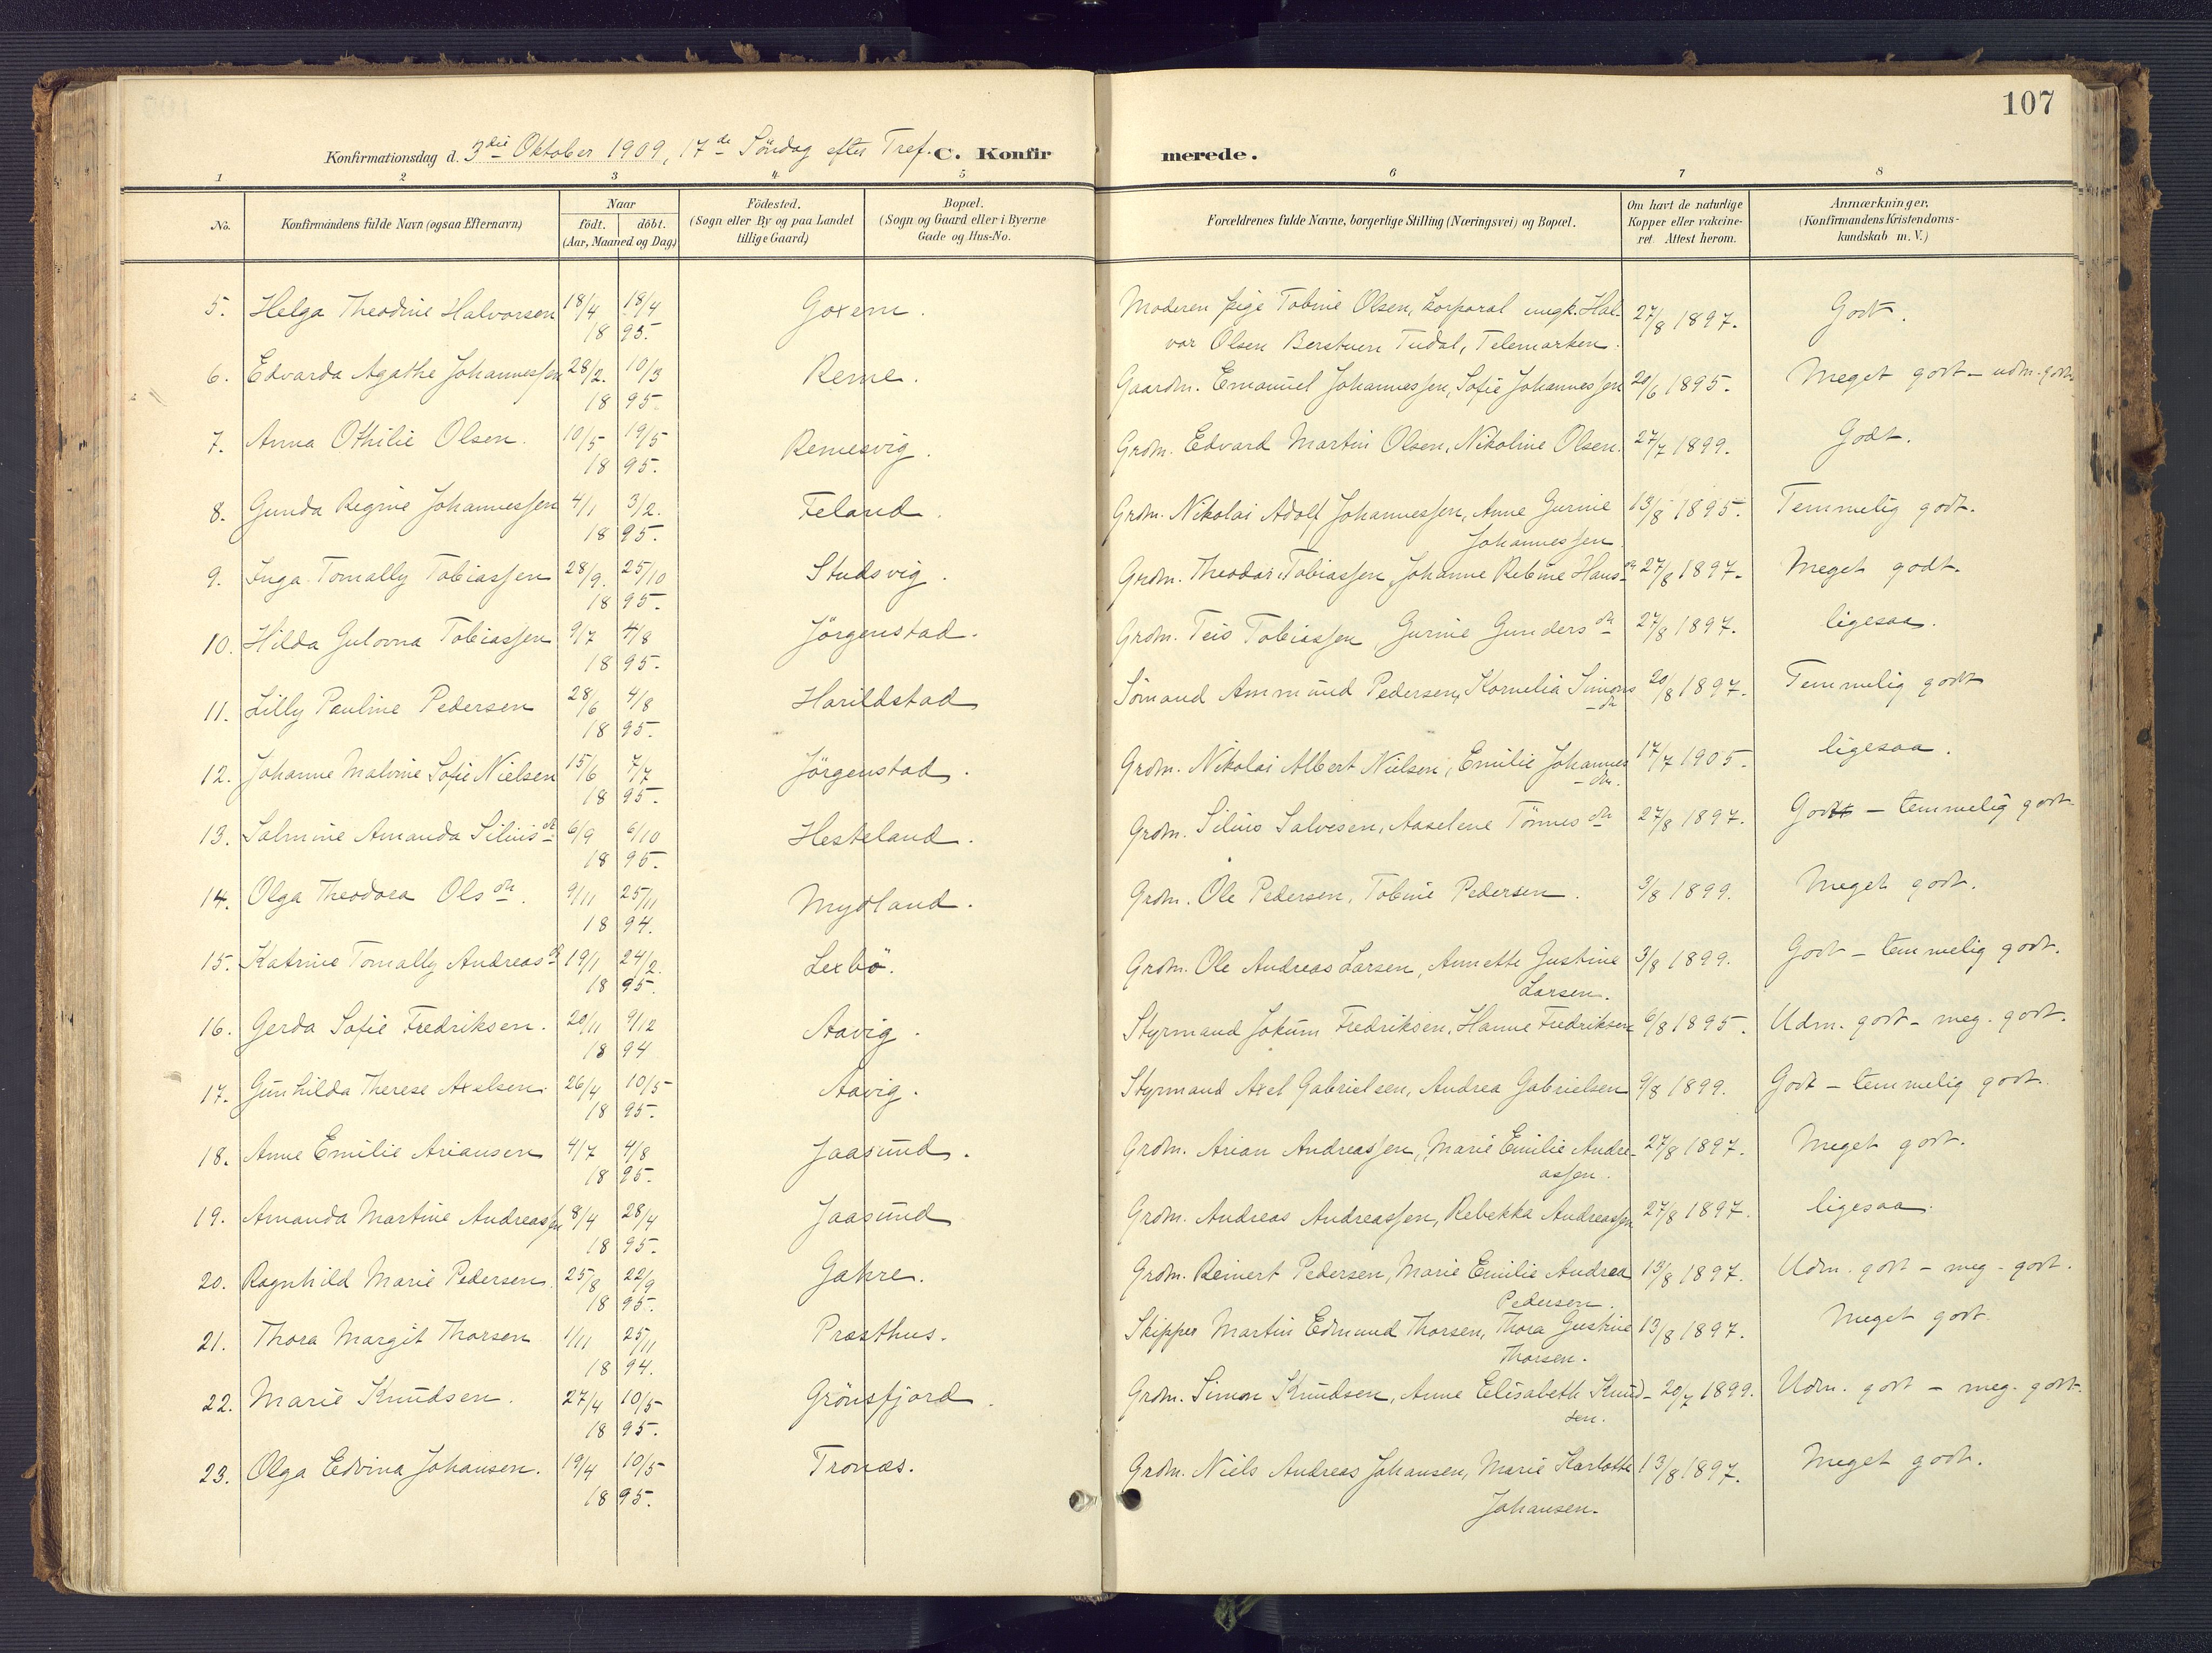 107
Konfirmationsdag d. 3die Oktober 1909, 17de Söndag efter Tref. C. Konfirmerede.
1 2 3 4 5 6 7 8
No. Konfirmandens fulde Navn (ogsaa Efternavn) Naar födt. döbt. (Aar, Maaned og Dag) Födested. (Sogn eller By og paa Landet tillige Gaard) Bopæl. (Sogn og Gaard eller i Byerne Gade og Hus-No. Forældrenes fulde Navne, borgerlige Stilling (Næringsvei) og Bopæl. Om havt de naturlige Kopper eller vakcineret. Attest herom. Anmærkninger. (Konfirmandens Kristendomskundskab m. V.)
5. Helga Theodine Halvorsen 18/4 18/4 Goxem. Moderen pige Tobine Olsen, korporal ungk. Hal- 27/8 1897. Godt.
18 95. vor Olsen Berstuen Tudal, Telemarken.
6. Edvarda Agathe Johannessen 28/2. 10/3 Reme. Gaardm. Emanuel Johannessen, Sofie Johannessen 20/6 1895. Meget godt - udm. godt
18 95.
7. Anna Othilie Olsen. 10/5 19/5 Remesvig. Grdm. Edvard Martin Olsen, Nikoline Olsen. 27/7 1899. Godt.
18 95.
8. Gunda Regine Johannessen 4/1 3/2. Feland. Grdm. Nikolai Adolf Johannessen, Anne Gurine 13/8 1895. Temmelig godt.
18 95. Johannessen.
9. Inga Tomally Tobiassen 28/9. 25/10 Studsvig. Grdm. Theodor Tobiassen, Johanne Rebine Hansdr 27/8 1897. Meget godt.
18 95.
10. Hilda Gulovna Tobiassen 9/7 4/8 Jörgenstad. Grdm. Teis Tobiassen, Gurine Gundersdr 27/8 1897. ligesaa.
18 95.
11. Lilly Pauline Pedersen 28/6 4/8 Harildstad Sömand Ammund Pedersen, Kornelia Simons 20/8 1897. Temmelig godt
18 95. -dr
12. Johanne Malvine Sofie Nielsen 15/6 7/7 Jörgenstad. Grdm. Nikolai Albert Nielsen, Emilie Johannes 17/7 1905. ligesaa.
18 95. -dr.
13. Salmine Amanda Siliusdr 6/9 6/10 Hesteland. Grdm. Silius Salvesen, Aaselene Tönnesdr 27/8 1897. Godt - temmelig godt
18 95.
14. Olga Theodora Olsdr. 9/11 25/11 Mydland. Grdm. Ole Pedersen, Tobine Pedersen. 3/8 1899. Meget godt.
18 94.
15. Katrine Tomally Andreasdr 19/1 24/2. Lexbö. Grdm. Ole Andreas Larsen, Annette Gustine 3/8 1899. Godt - temmelig godt.
18 95. Larsen.
16. Gerda Sofie Fredriksen. 20/11 9/12 Aavig. Styrmand Jokum Fredriksen, Hanne Fredriksen 6/8 1895. Udm. godt - meg. godt.
18 94
17. Gunhilda Therese Axelsen. 26/4 10/5 Aavig. Styrmand Axel Gabrielsen, Andrea Gabrielsen 9/8 1899. Godt - temmelig godt.
18 95.
18. Anne Emilie Ariansen 4/7 4/8 Jaasund. Grdm. Arian Andreassen, Marie Emilie Andre- 27/8 1897. Meget godt.
18 95. assen.
19. Amanda Martine Andreassen 8/4 28/4 Jaasund Grdm. Andreas Andreassen, Rebekka Andreassen 27/8 1897. ligesaa.
18 95.
20. Ragnhild Marie Pedersen. 25/8 22/9 Gahre. Grdm. Reinert Pedersen, Marie Emilie Andrea 13/8 1897. Udm. godt - meg. godt.
18 95. Pedersen.
21. Thora Margit Thorsen 1/11 25/11 Præsthus. Skipper Martin Edmund Thorsen, Thora Gustine 13/8 1897. Meget godt.
18 94. Thorsen.
22. Marie Knudsen. 27/4 10/5 Grönsfjord. Grdm. Simon Knudsen, Anne Elisabeth Knud- 20/7 1899. Udm. godt - meg. godt.
18 95. sen.
23. Olga Edvina Johansen. 19/4 10/5 Tronæs. Grdm. Niels Andreas Johansen, Marie Karlotte 13/8 1897. Meget godt.
18 95. Johansen.